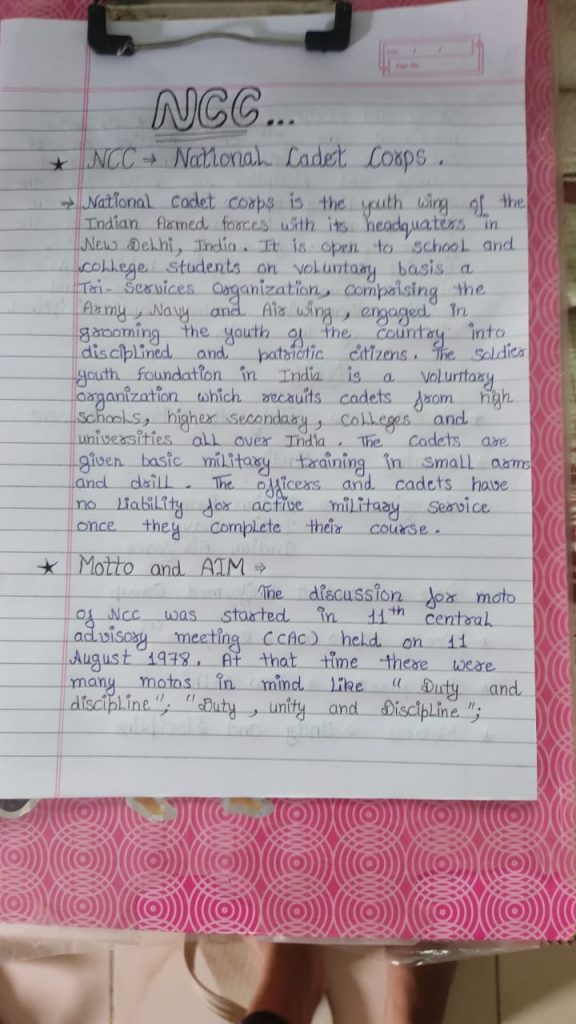 NCC...
★ NCC → National Cadet Corps.
→ National cadet corps is the youth wing of the
Indian Armed forces with its headquaters in
New Delhi, India. It is open to school and
college students on voluntary basis a
Tri-Services Organization, comprising the
Army, Navy and Air wing, engaged in
grooming the youth of the country into
disciplined and patriotic citizens. The soldier
youth foundation in India is a voluntary
organization which recruits cadets from high
schools, higher secondary, colleges and
universities all over India. The cadets are
given basic military training in small arms
and drill. The officers and cadets have
no liability for active military service
once they complete their course.
★ Motto and AIM →
The discussion for moto
of NCC was started in 11th central
advisory meeting (CAC) held on 11
August 1978. At that time there were
many motos in mind like " Duty and
discipline"; "Duty, unity and Discipline";